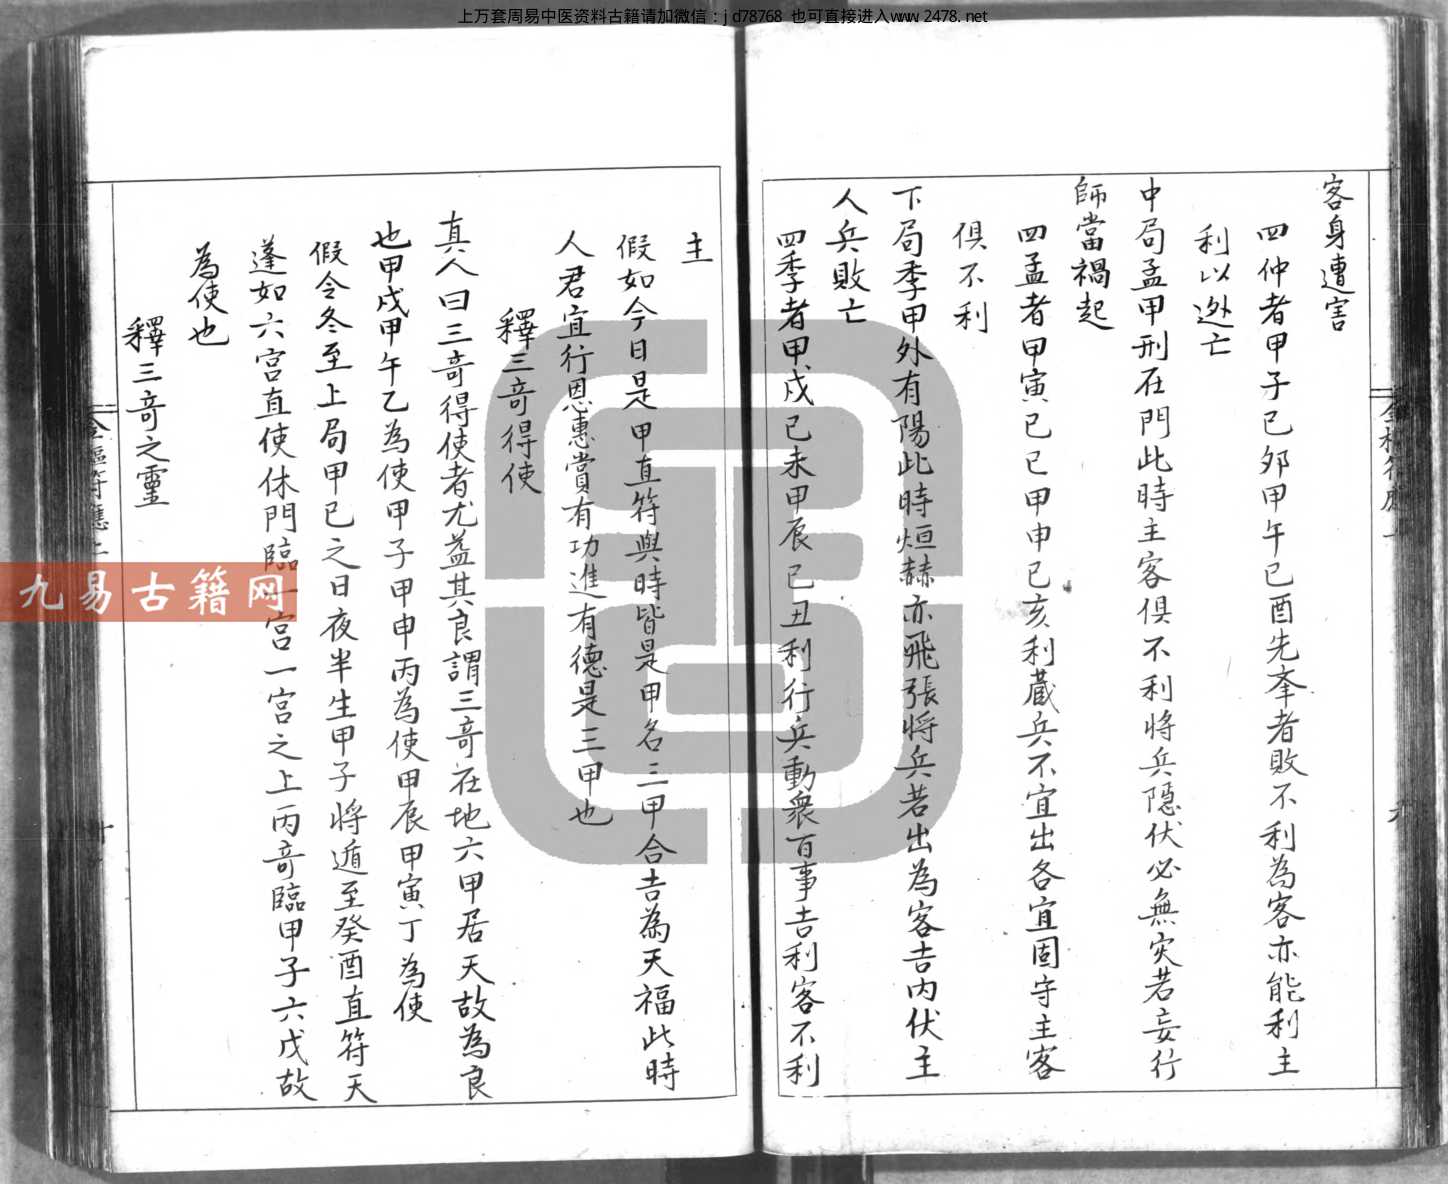 上万套周易中医资料古籍请加微信：jd78768 也可直接进入www.2478.net
客身遭害
四仲者甲子己卯甲午己酉先夲者敗不利為客亦能利主
利以逃亡
中局孟甲刑在門此時主客俱不利將兵隱伏必無灾若妄行
師當禍起
四孟者甲寅己巳甲申己亥利蔵兵不宜出各宜固守主客
俱不利
下局季甲外有陽此時烜赫亦飛張將兵若出為客吉内伏主
人兵敗亡
四季者甲戌己未甲辰己丑利行兵動衆百事吉利客不利
主
假如今日是甲直符與時皆是甲名三甲合吉為天福此時
人君宜行恩惠賞有功進有德是三甲也
釋三竒得使
真人曰三竒得使者尤益其良謂三竒在地六甲居天故為良
也甲戌甲午乙為使甲子甲申丙為使甲辰甲寅丁為使
假令冬至上局甲己之日夜半生甲子將遁至癸酉直符天
蓬如六宫直使休門臨一宫一宫之上丙竒臨甲子六戊故
為使也
釋三竒之靈
九易古籍网